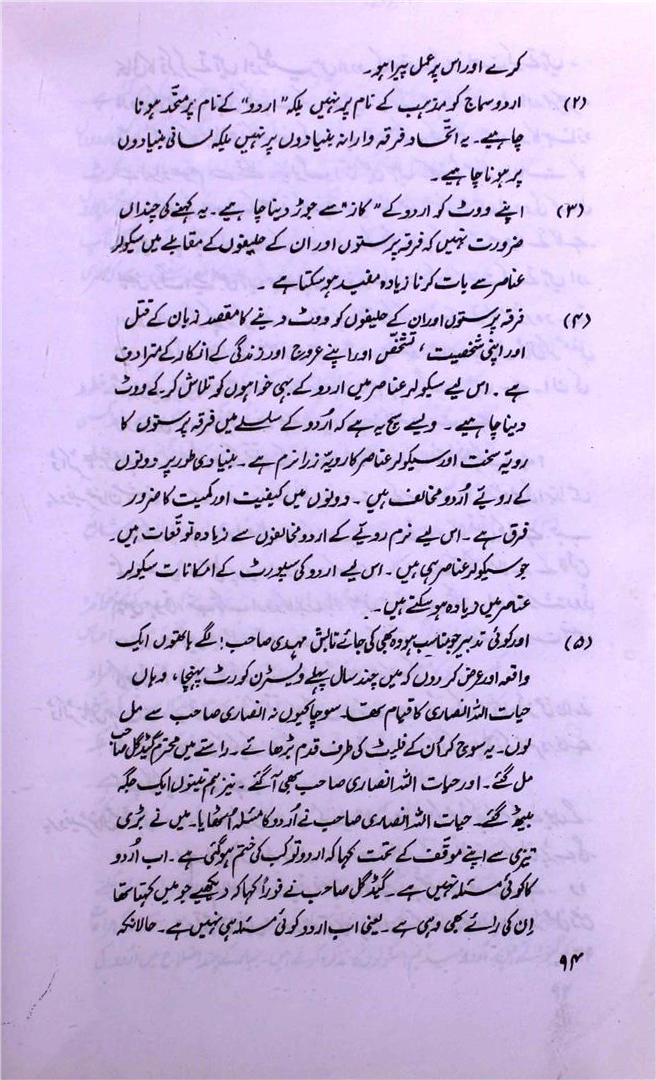 کرے اور اس پر عمل پیرا ہو۔
(۲) اردو سماج کو مذہب کے نام پر نہیں بلکہ "اردو" کے نام پر متحد ہونا
چاہیے۔ یہ اتحاد فرقہ وارانہ بنیادوں پر نہیں بلکہ لسانی بنیادوں
پر ہونا چاہیے۔
(۳) اپنے ووٹ کو اردو کے "کاز" سے جوڑ دینا چاہیے۔ یہ کہنے کی چنداں
ضرورت نہیں کہ فرقہ پرستوں اور ان کے حلیفوں کے مقابلے میں سیکولر
عناصر سے بات کرنا زیادہ مفید ہو سکتا ہے۔
(۴) فرقہ پرستوں اور ان کے حلیفوں کو ووٹ دینے کا مقصد زبان کے قتل
اور اپنی شخصیت، تشخص اور اپنے عروج اور زندگی کے انکار کے مترادف
ہے۔ اس لیے سیکولر عناصر میں اردو کے بہی خواہوں کو تلاش کر کے ووٹ
دینا چاہیے۔ ویسے سچ یہ ہے کہ اُردو کے سلسلے میں فرقہ پرستوں کا
رویّہ سخت اور سیکولر عناصر کا رویّہ ذرا نرم ہے۔ بنیادی طور پر دونوں
کے رویّے اُردو مخالف ہیں۔ دونوں میں کیفیت اور کمیت کا ضرور
فرق ہے۔ اس لیے نرم رویّے کے اردو مخالفوں سے زیادہ توقعات ہیں۔
جو سیکولر عناصر ہی ہیں۔ اس لیے اردو کی سپورٹ کے امکانات سیکولر
عناصر میں زیادہ ہو سکتے ہیں۔
(۵) اور کوئی تدبیر جو مناسب ہو وہ بھی کی جائے تابش مہدی صاحب! لگے ہاتھوں ایک
واقعہ اور عرض کر دوں کہ میں چند سال پہلے ویسٹرن کورٹ پہنچا، وہاں
حیات اللہ انصاری کا قیام تھا۔ سوچا کیوں نہ انصاری صاحب سے مل
لوں۔ یہ سوچ کر اُن کے فلیٹ کی طرف قدم بڑھائے۔ راستے میں محترم گیڈگل صاحب
مل گئے۔ اور حیات اللہ انصاری صاحب بھی آ گئے۔ نیز ہم تینوں ایک جگہ
بیٹھ گئے۔ حیات اللہ انصاری صاحب نے اُردو کا مسئلہ اُٹھایا۔ میں نے بڑی
تیزی سے اپنے موقف کے تحت کہا کہ اردو تو کب کی ختم ہو گئی ہے۔ اب اُردو
کا کوئی مسئلہ نہیں ہے۔ گیڈگل صاحب نے فوراً کہا کہ دیکھیے جو میں کہتا تھا
اِن کی رائے بھی وہی ہے۔ یعنی اب اردو کوئی مسئلہ ہی نہیں ہے۔ حالانکہ
۹۴